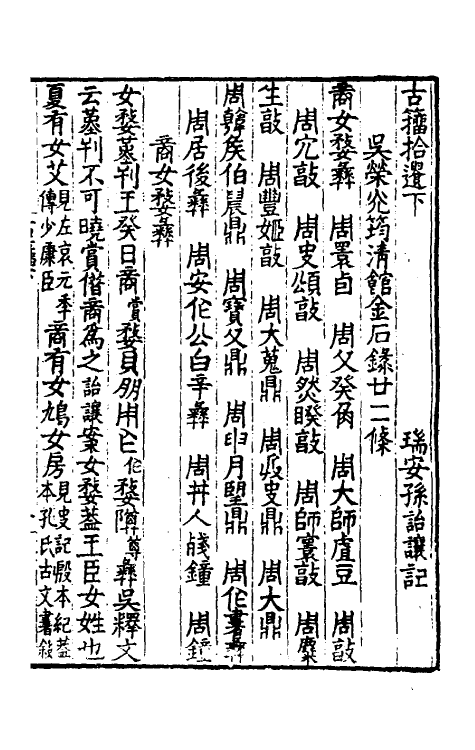 古籀拾遺下　瑞安孫詒讓記
吳榮光筠清館金石錄廿二條
商女婺彝　周睘卣　周父癸角　周大師虘豆　周敔
周宂敔　周史頌敔　周然睽敔　周師㝨敔　周麋
生敔　周豐姬敔　周大蒐鼎　周史鼎　周大鼎
周韓矦伯晨鼎　周寶父鼎　周月望鼎　周作書彝
周居後彝　周安作公白辛彝　周井人鐘　周鐘
商女婺彝
女婺堇刊王癸日商賞婺貝朋用作婺障尊彝吳釋文
云堇刊不可曉賞借商爲之詒讓案女婺葢王臣女姓也
夏有女艾見左哀元年傳少康臣商有女鳩女房見史記殷本紀葢本孔氏古文書敘